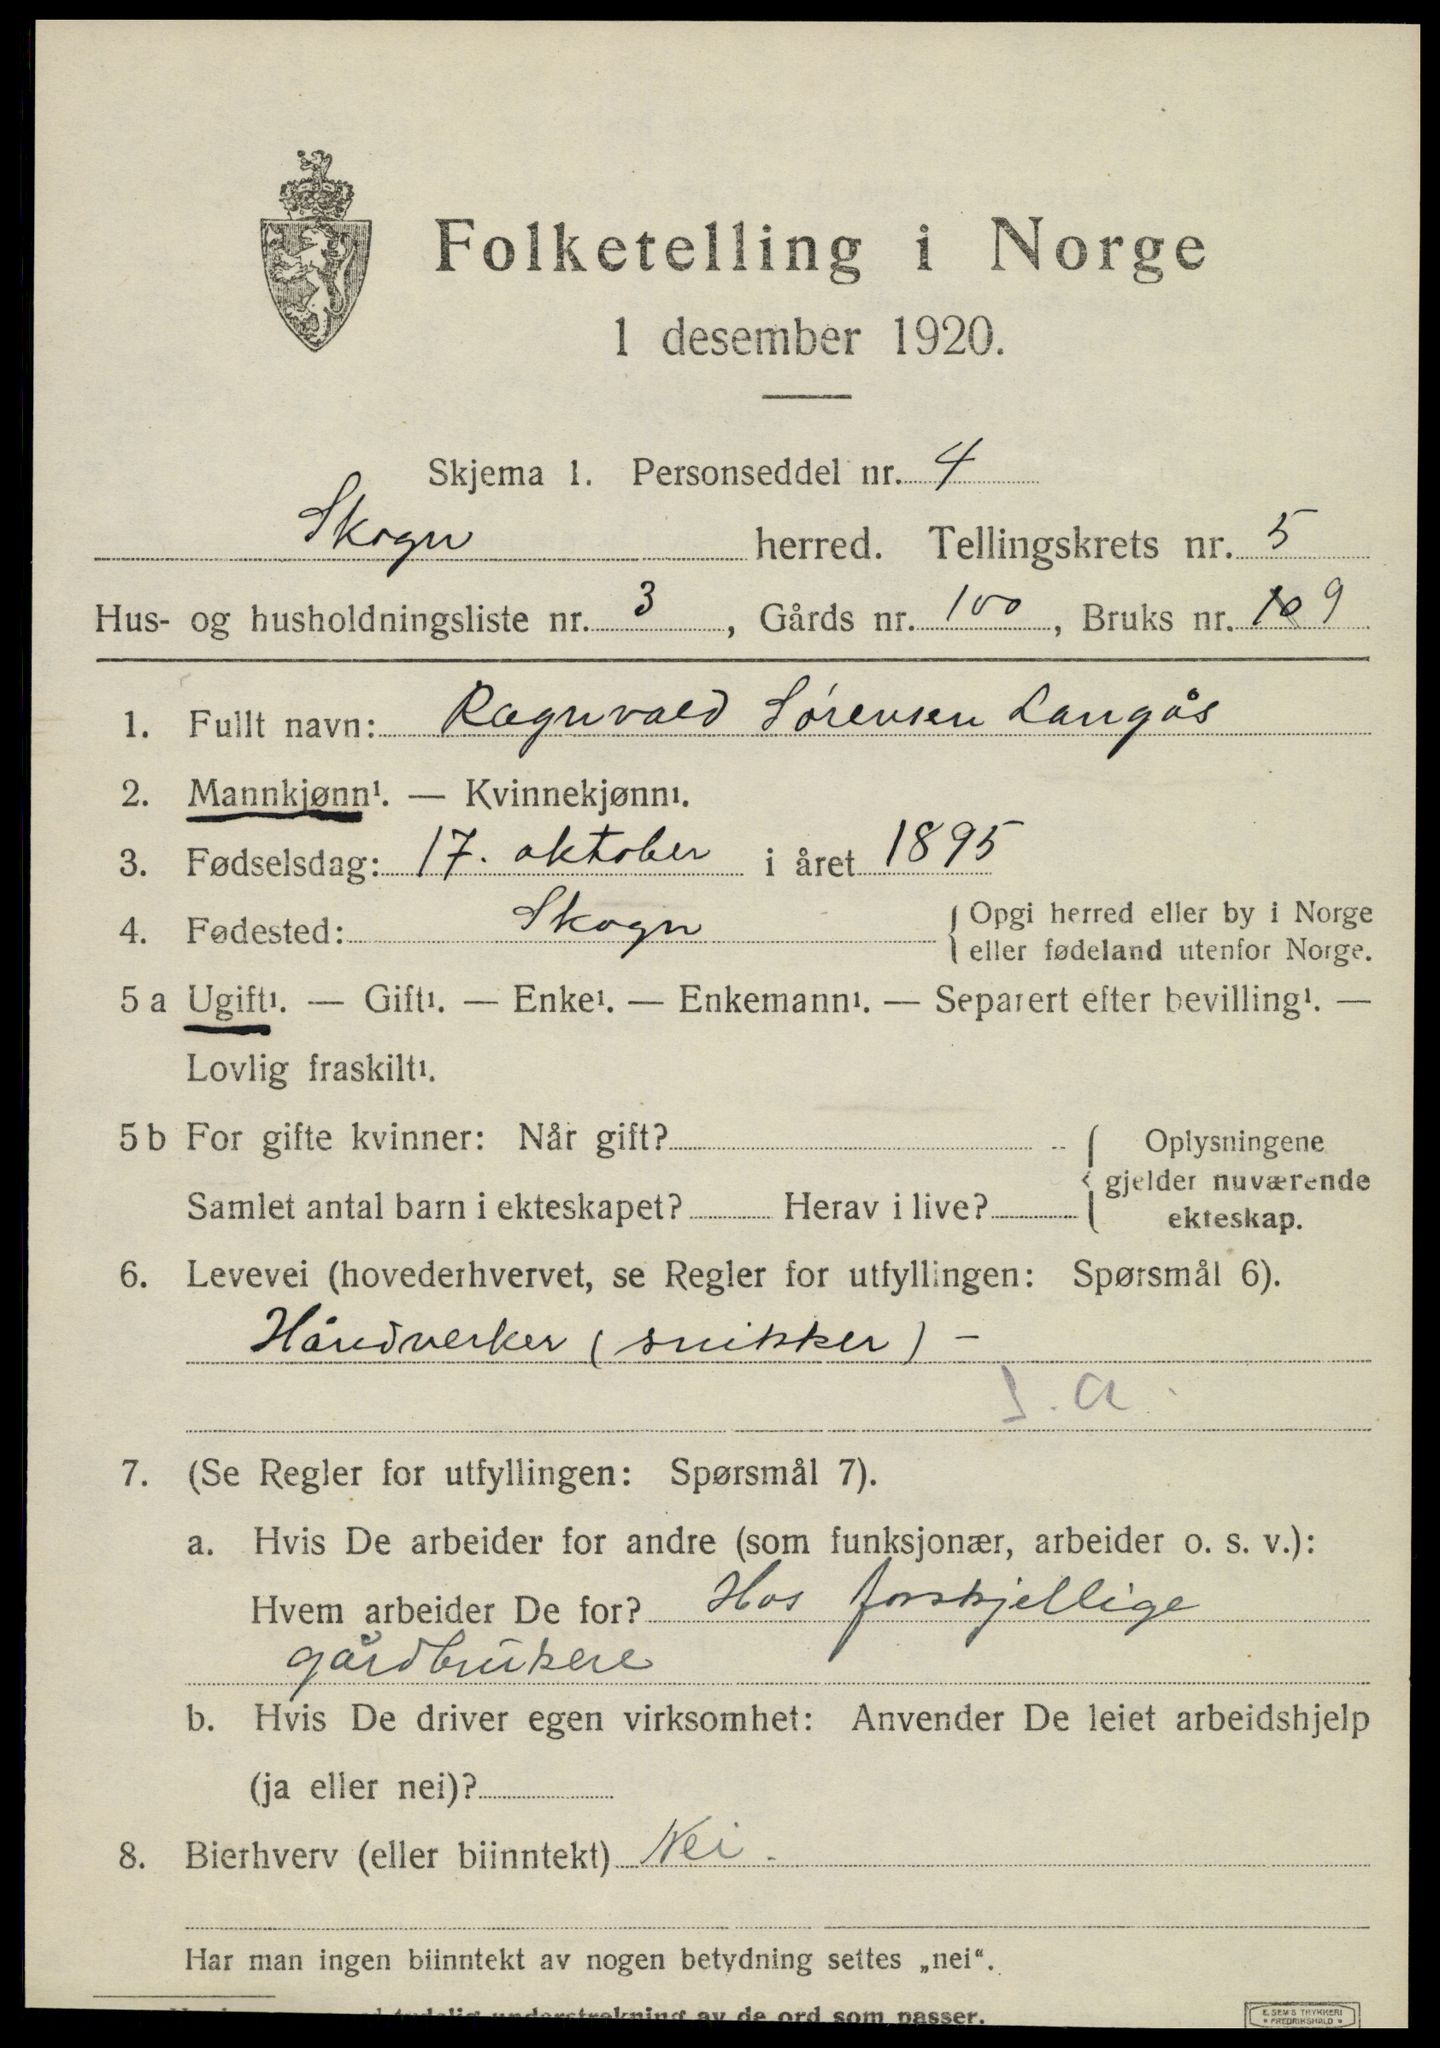 Folketelling i Norge
1 desember 1920.
Skjema 1. Personseddel nr. 4
Skogn herred. Tellingskrets nr. 5
Hus- og husholdningsliste nr. 3, Gårds nr. 100, Bruks nr. 10 9
1. Fullt navn: Ragnvald Sørensen Langås
2. Mannkjønn¹. — Kvinnekjønn¹.
3. Fødselsdag: 17. oktober i året 1895
4. Fødested: Skogn { Opgi herred eller by i Norge
eller fødeland utenfor Norge.
5 a Ugift¹. — Gift¹. — Enke¹. — Enkemann¹. — Separert efter bevilling¹. —
Lovlig fraskilt¹.
5 b For gifte kvinner: Når gift? { Oplysningene
gjelder nuværende
Samlet antal barn i ekteskapet? Herav i live? ekteskap.
6. Levevei (hovederhvervet, se Regler for utfyllingen: Spørsmål 6).
Håndverker (snikker) –
J. a.
7. (Se Regler for utfyllingen: Spørsmål 7).
a. Hvis De arbeider for andre (som funksjonær, arbeider o. s. v.):
Hvem arbeider De for? Hos forskjellige
gårdbrukere
b. Hvis De driver egen virksomhet: Anvender De leiet arbeidshjelp
(ja eller nei)?
8. Bierhverv (eller biinntekt) Nei.
Har man ingen biinntekt av nogen betydning settes „nei“.
tydelig understrekning av de ord som passer.
E. SEM'S TRYKKERI
* FREDRIKSHALD *